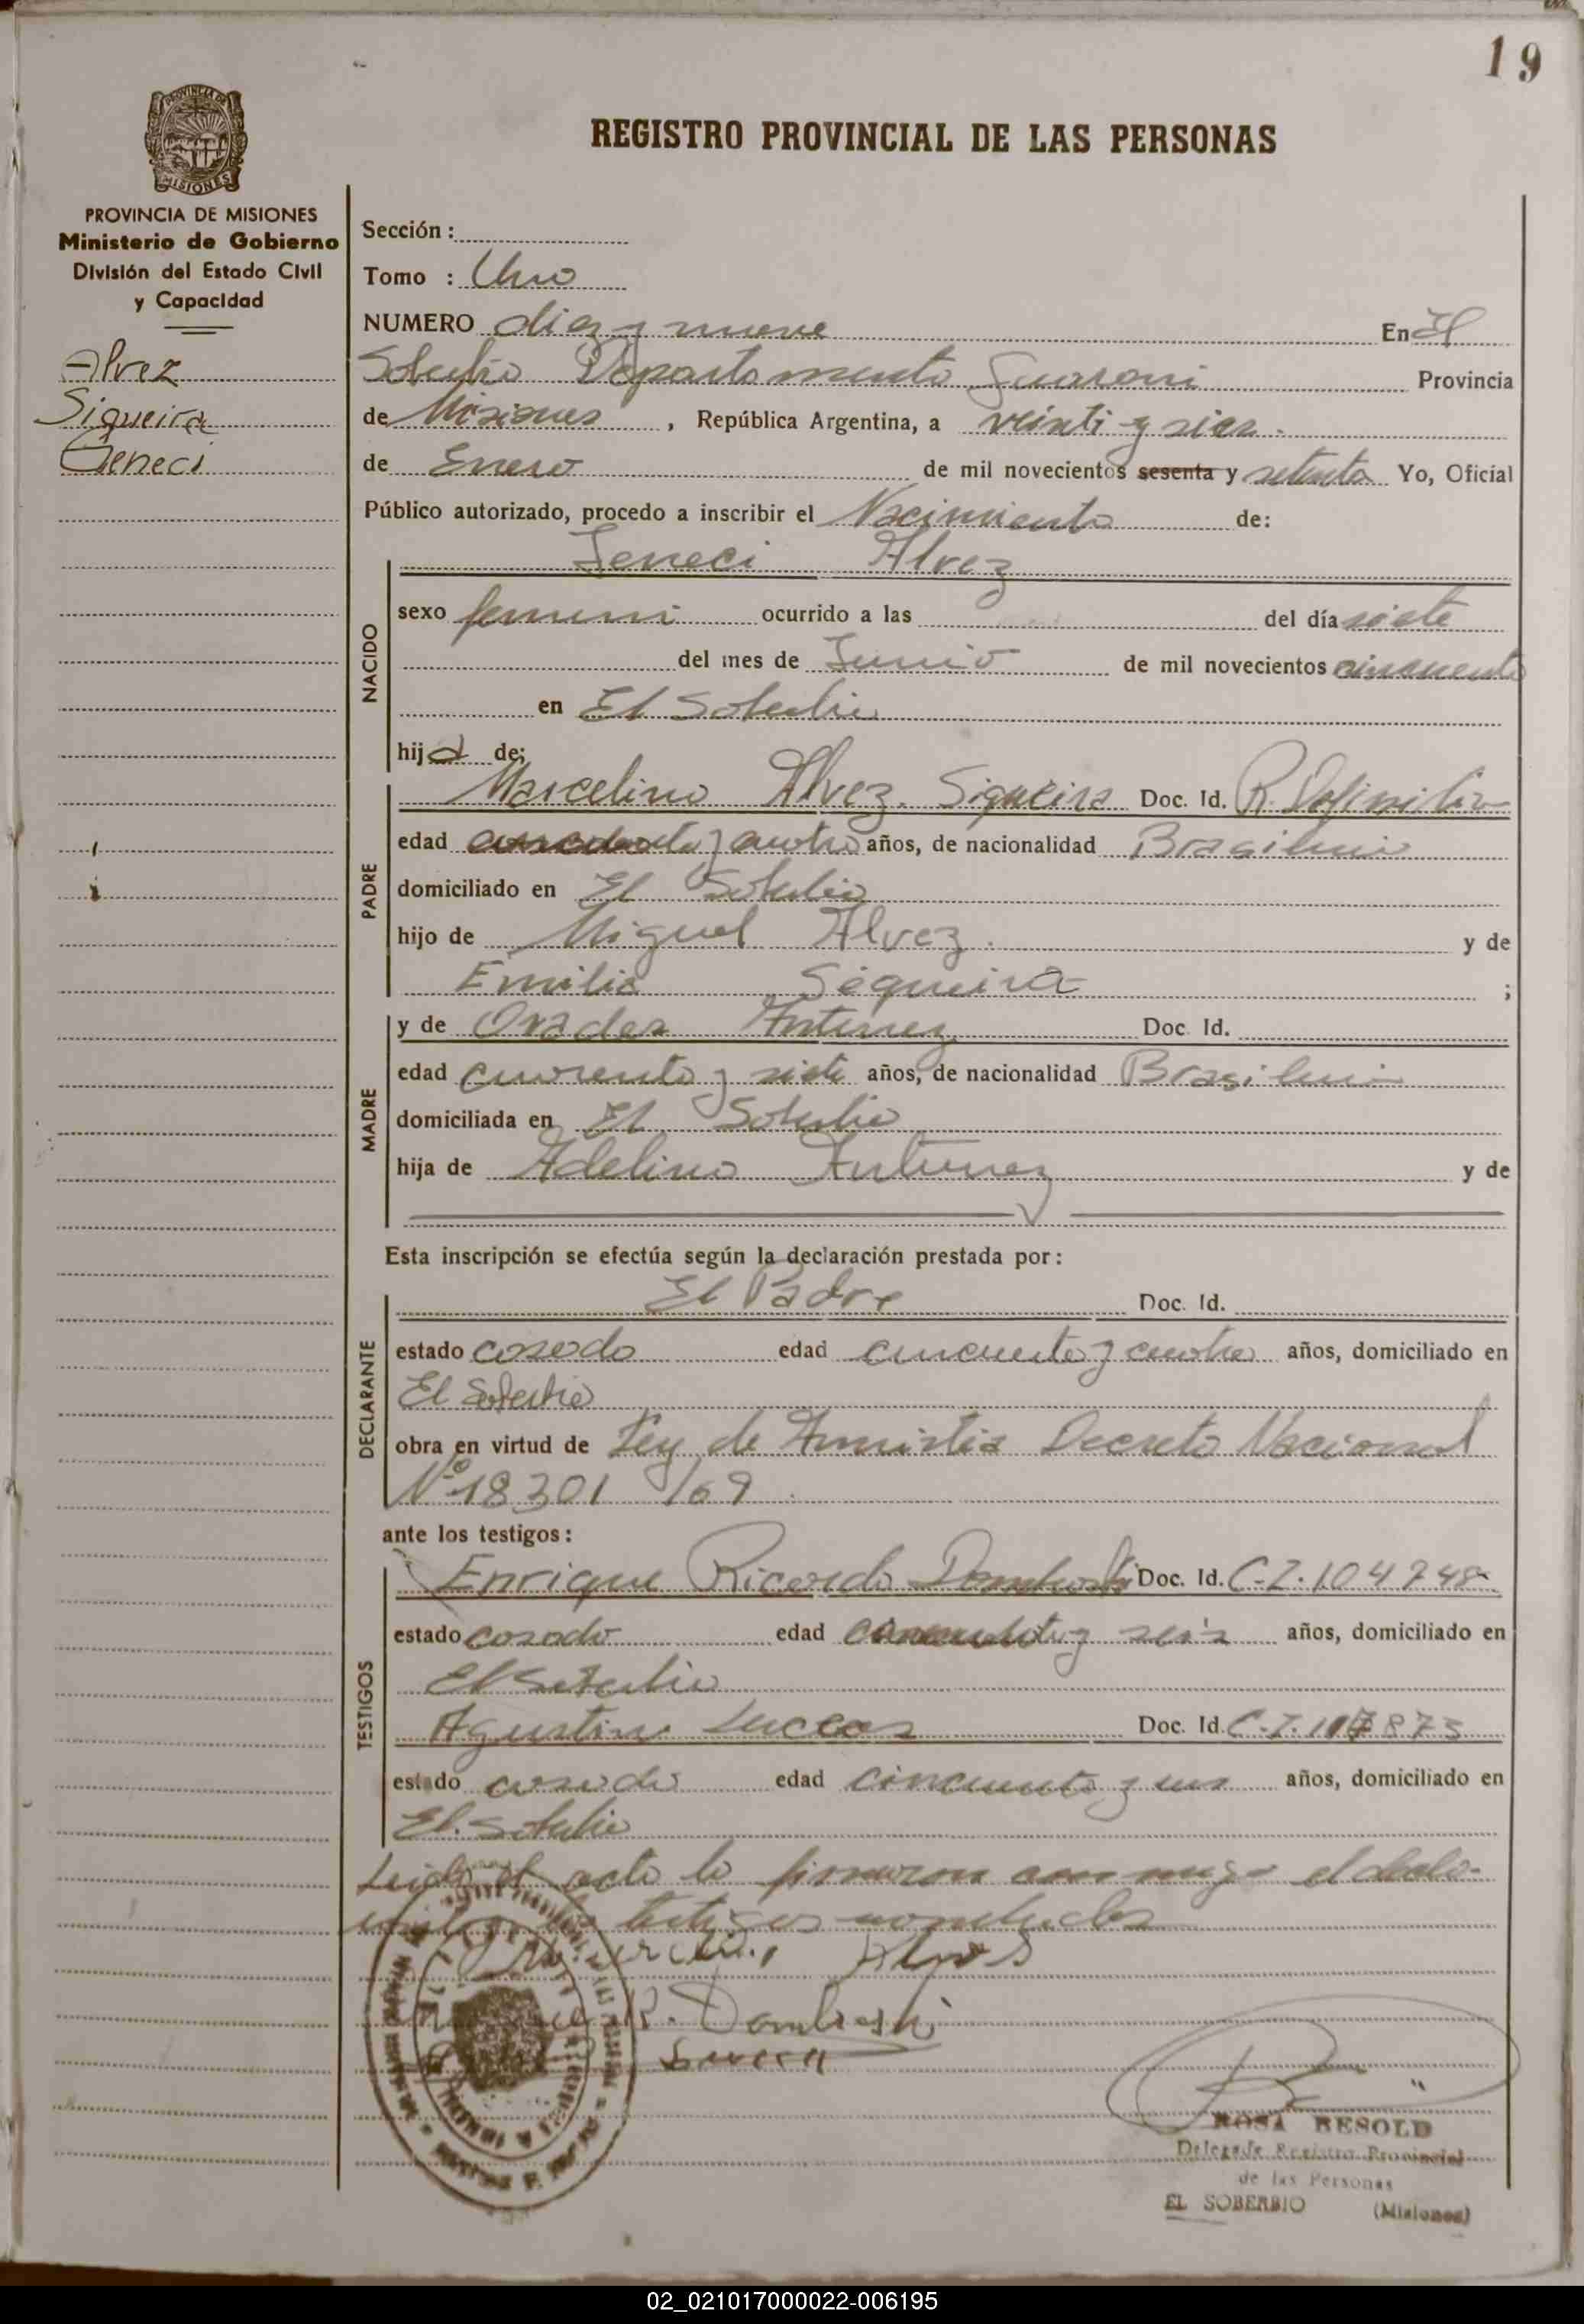 19
REGISTRO PROVINCIAL DE LAS PERSONAS
PROVINCIA DE MISIONES
Ministerio de Gobierno
División del Estado Civil
y Capacidad
Alvez
Siqueira
Jeneci
Sección :
Tomo : Uno
NUMERO diez y nueve En El
Soberbio Departamento Guarani Provincia
de Misiones , República Argentina, a veinti y
de Enero de mil novecientos sesenta y setenta Yo, Oficial
Público autorizado, procedo a inscribir el Nacimiento de:
Jeneci Alvez
NACIDO
sexo femeni ocurrido a las del día siete
del mes de Junio de mil novecientos cincuenta
en El Soberbio
hija de;
PADRE
Marcelino Alvez Siqueira Doc. Id. R. Definitivo
edad cincuenta y cuatro años, de nacionalidad Brasilero
domiciliado en El Soberbio
hijo de Miguel Alvez y de
Emilia Siqueira ;
MADRE
y de Antunez Doc. Id.
edad cuarenta y siete años, de nacionalidad Brasilera
domiciliada en El Soberbio
hija de Adelino Antunez y de
Esta inscripción se efectúa según la declaración prestada por:
DECLARANTE
El Padre Doc. Id.
estado casado edad cincuenta y cuatro años, domiciliado en
El Soberbio
obra en virtud de Ley de Amnistia Decreto Nacional
Nº 18301 /69
ante los testigos:
TESTIGOS
Enrique Ricardo Domboski Doc. Id. C.I. 104748
estado casado edad cincuenta y seis años, domiciliado en
El Soberbio
Agustin Luccas Doc. Id. C.I. 117873
estado casado edad cincuenta y un años, domiciliado en
El Soberbio
Leida el acta la firmaron conmigo el decla-
testigos
R. Domboski
ROSA BESOLD
Delegada Registro Provincial
de las Personas
EL SOBERBIO (Misiones)
02_021017000022-006195